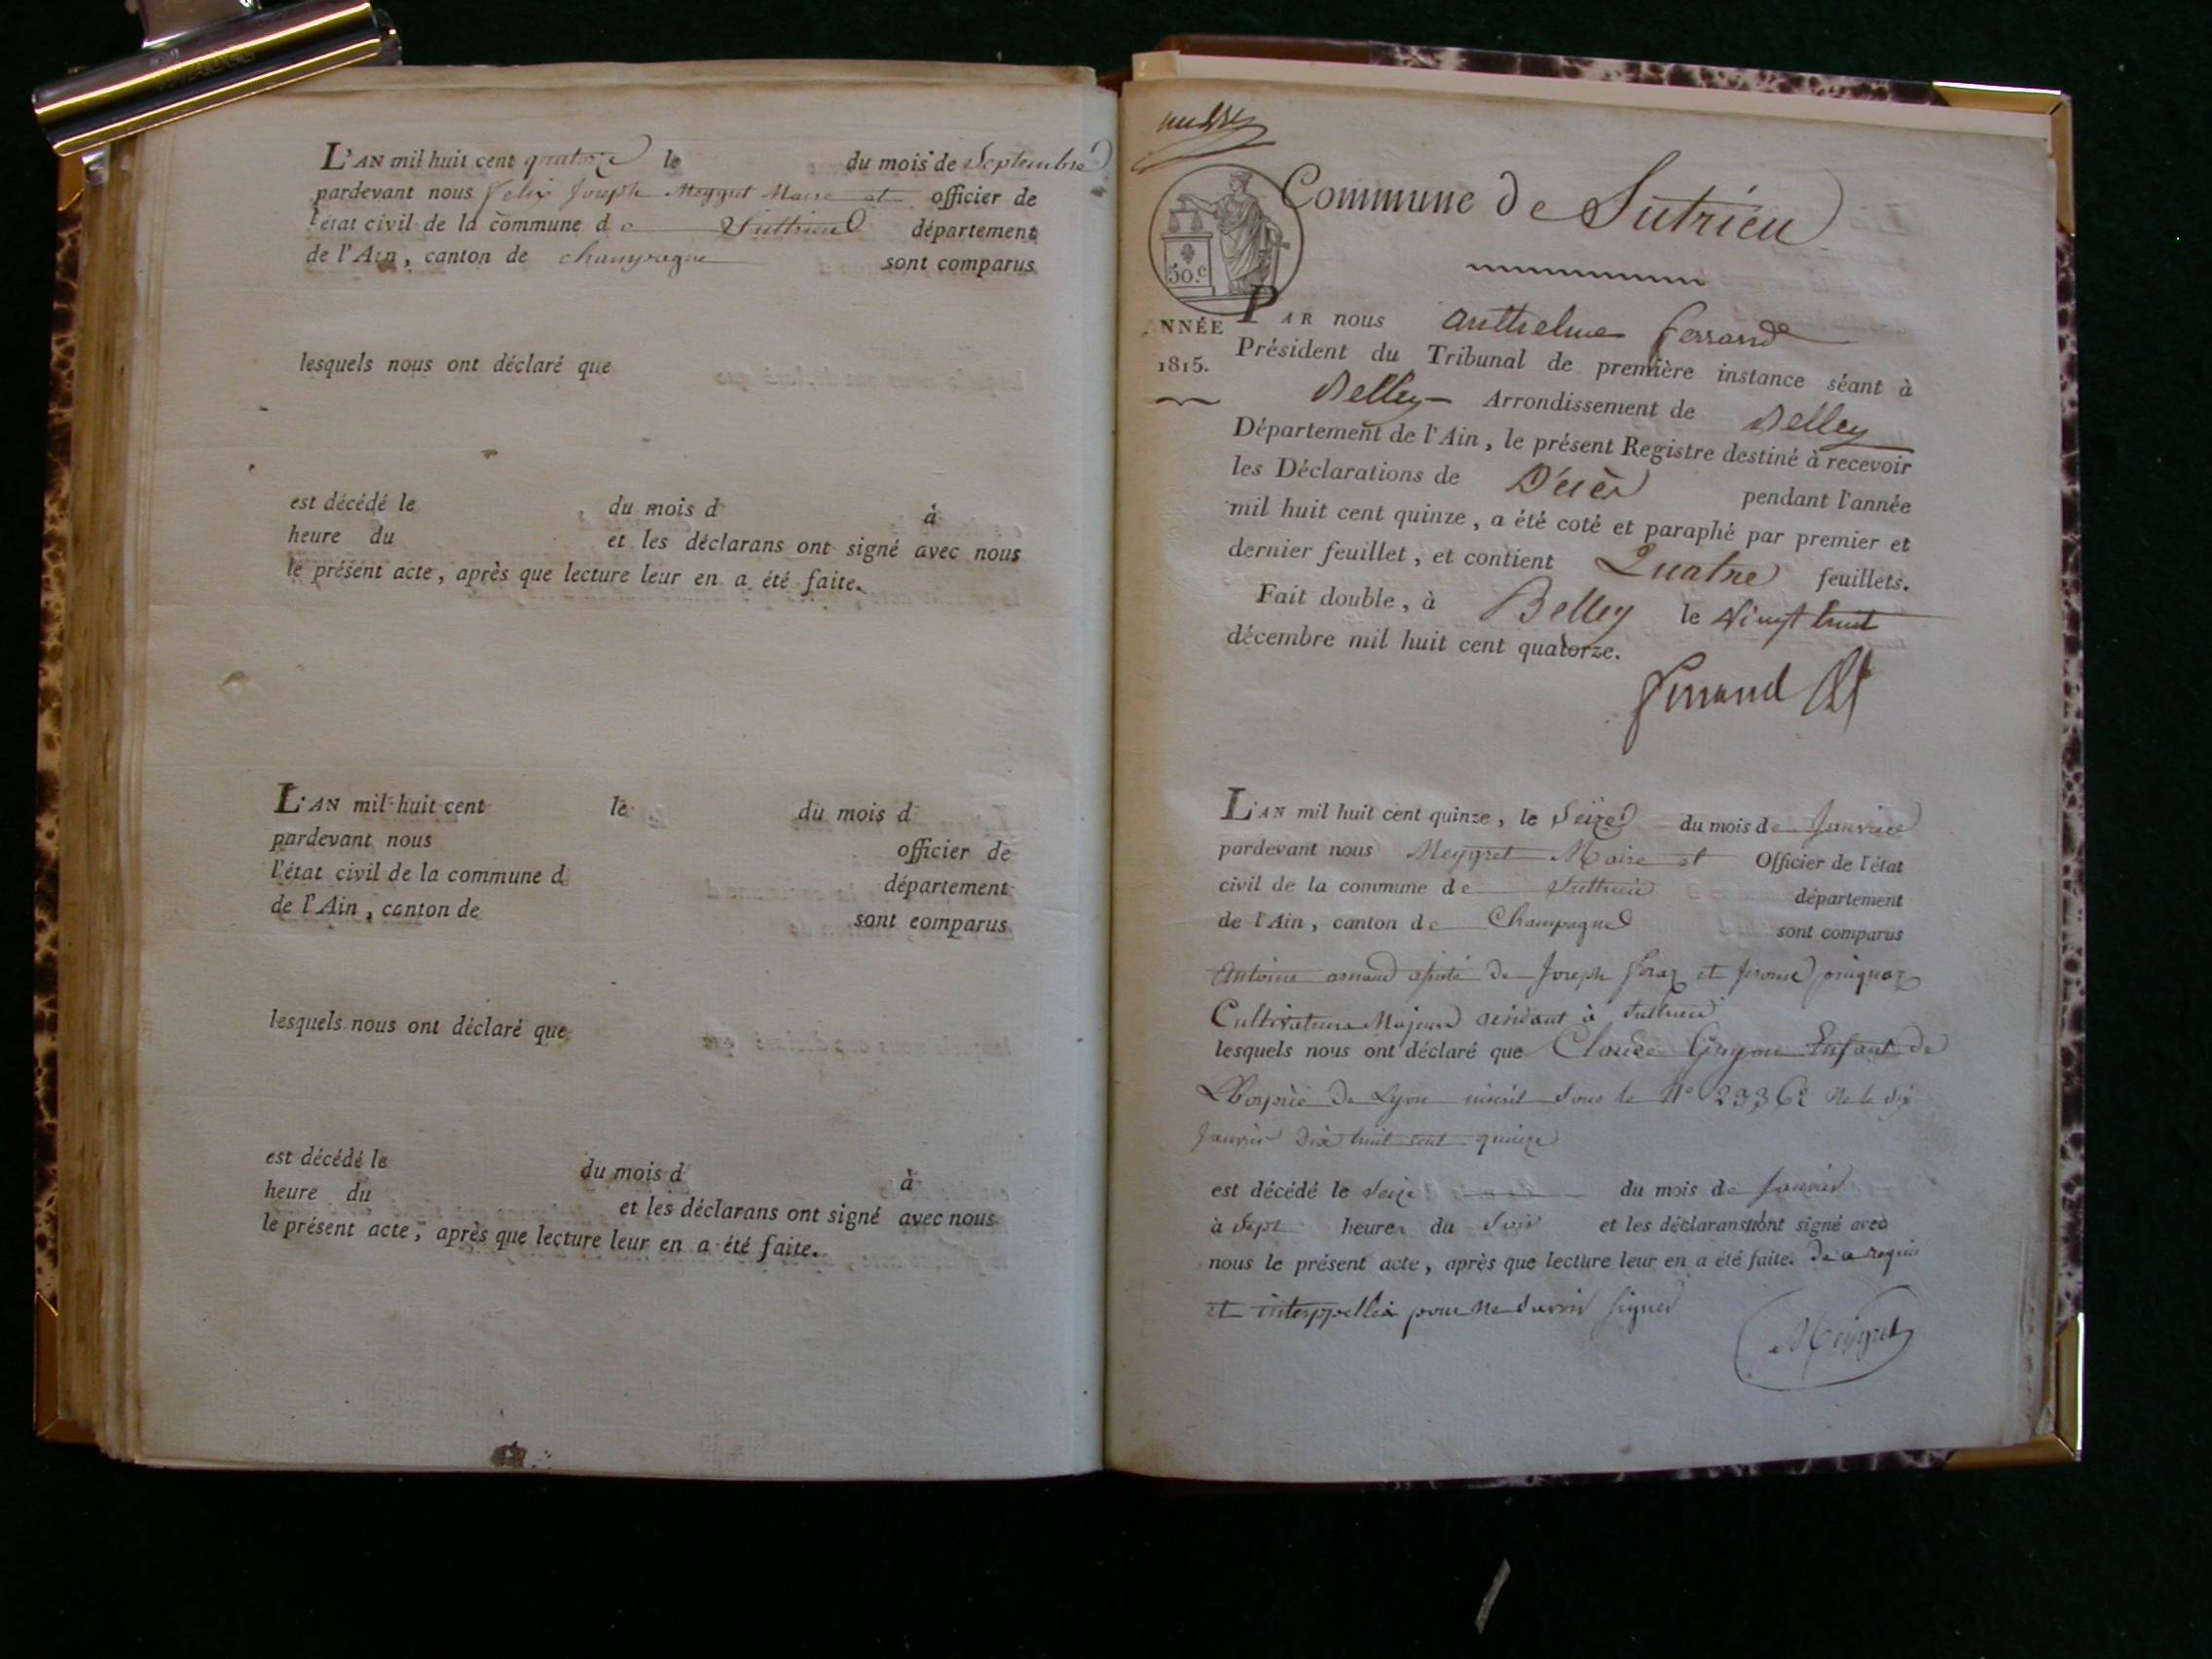 L'AN mil huit cent quatorze le du mois de Septembre
pardevant nous felix Joseph Meygret Maire et officier de
l'état civil de la commune de Suttrieu département
de l'Ain, canton de champagne sont comparus
lesquels nous ont déclaré que
est décédé le du mois d à
heure du et les déclarans ont signé avec nous
le présent acte, après que lecture leur en a été faite.
L'AN mil huit cent le du mois d
pardevant nous officier de
l'état civil de la commune d département
de l'Ain, canton de sont comparus
lesquels nous ont déclaré que
est décédé le du mois d à
heure du et les déclarans ont signé avec nous
le présent acte, après que lecture leur en a été faite.
Commune de Sutrieu
30.c
ANNÉE
1815.
PAR nous Anthelme ferrand
Président du Tribunal de première instance séant à
Belley Arrondissement de Belley
Département de l'Ain, le présent Registre destiné à recevoir
les Déclarations de Décès pendant l'année
mil huit cent quinze, a été coté et paraphé par premier et
dernier feuillet, et contient Quatre feuillets.
Fait double, à Belley le vingt huit
décembre mil huit cent quatorze.
ferrand
L'AN mil huit cent quinze, le Seize du mois de Janvier
pardevant nous Meygret Maire et Officier de l'état
civil de la commune de Suttrieu département
de l'Ain, canton de Champagne sont comparus
Antoine de Joseph et Jerome
Cultivateurs Majeurs à Suttrieu
lesquels nous ont déclaré que Claude Enfant de
L'hospice de Lyon inscrit sous le N° 23362 Né le Six
Janvier Dix huit cent quinze
est décédé le Seize du mois de Janvier
à Sept heures du Soir et les déclarans n'ont signé avec
nous le présent acte, après que lecture leur en a été faite. de ce requis
et interppellés pour ne Savoir Signer
Meygret